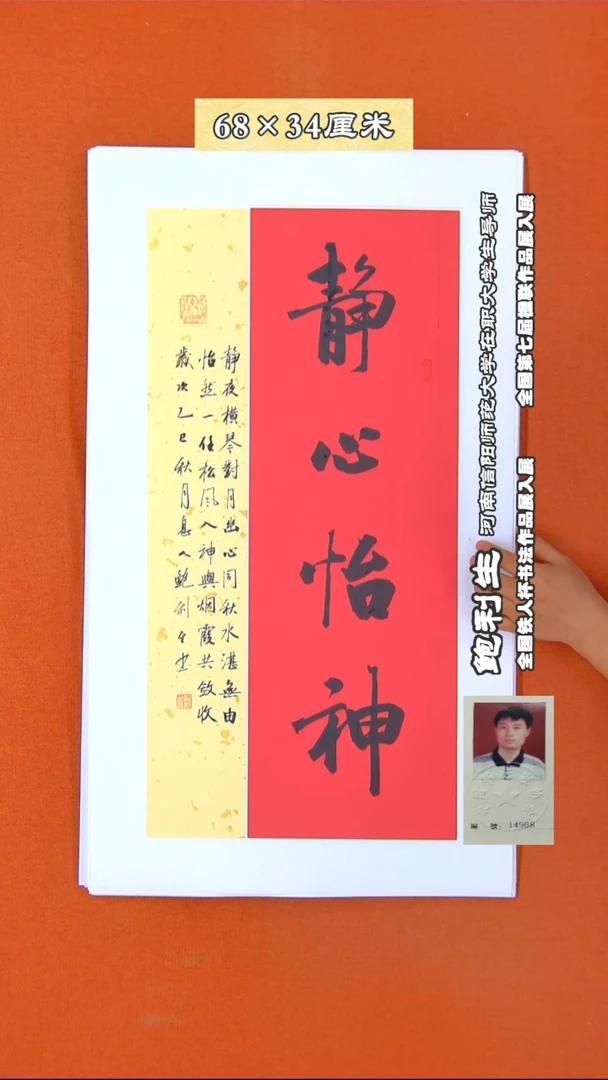 68×34厘米
静心怡神
静夜横琴對月幽心同秋水湛無由
怡然一任松風入神與烟霞共敛收
歲次乙巳秋月息人鲍利生書
鲍利生 河南信阳师范大学在职大学生导师
全国铁人杯书法作品展入展 全国第七届楹联作品展入展
編號：14968